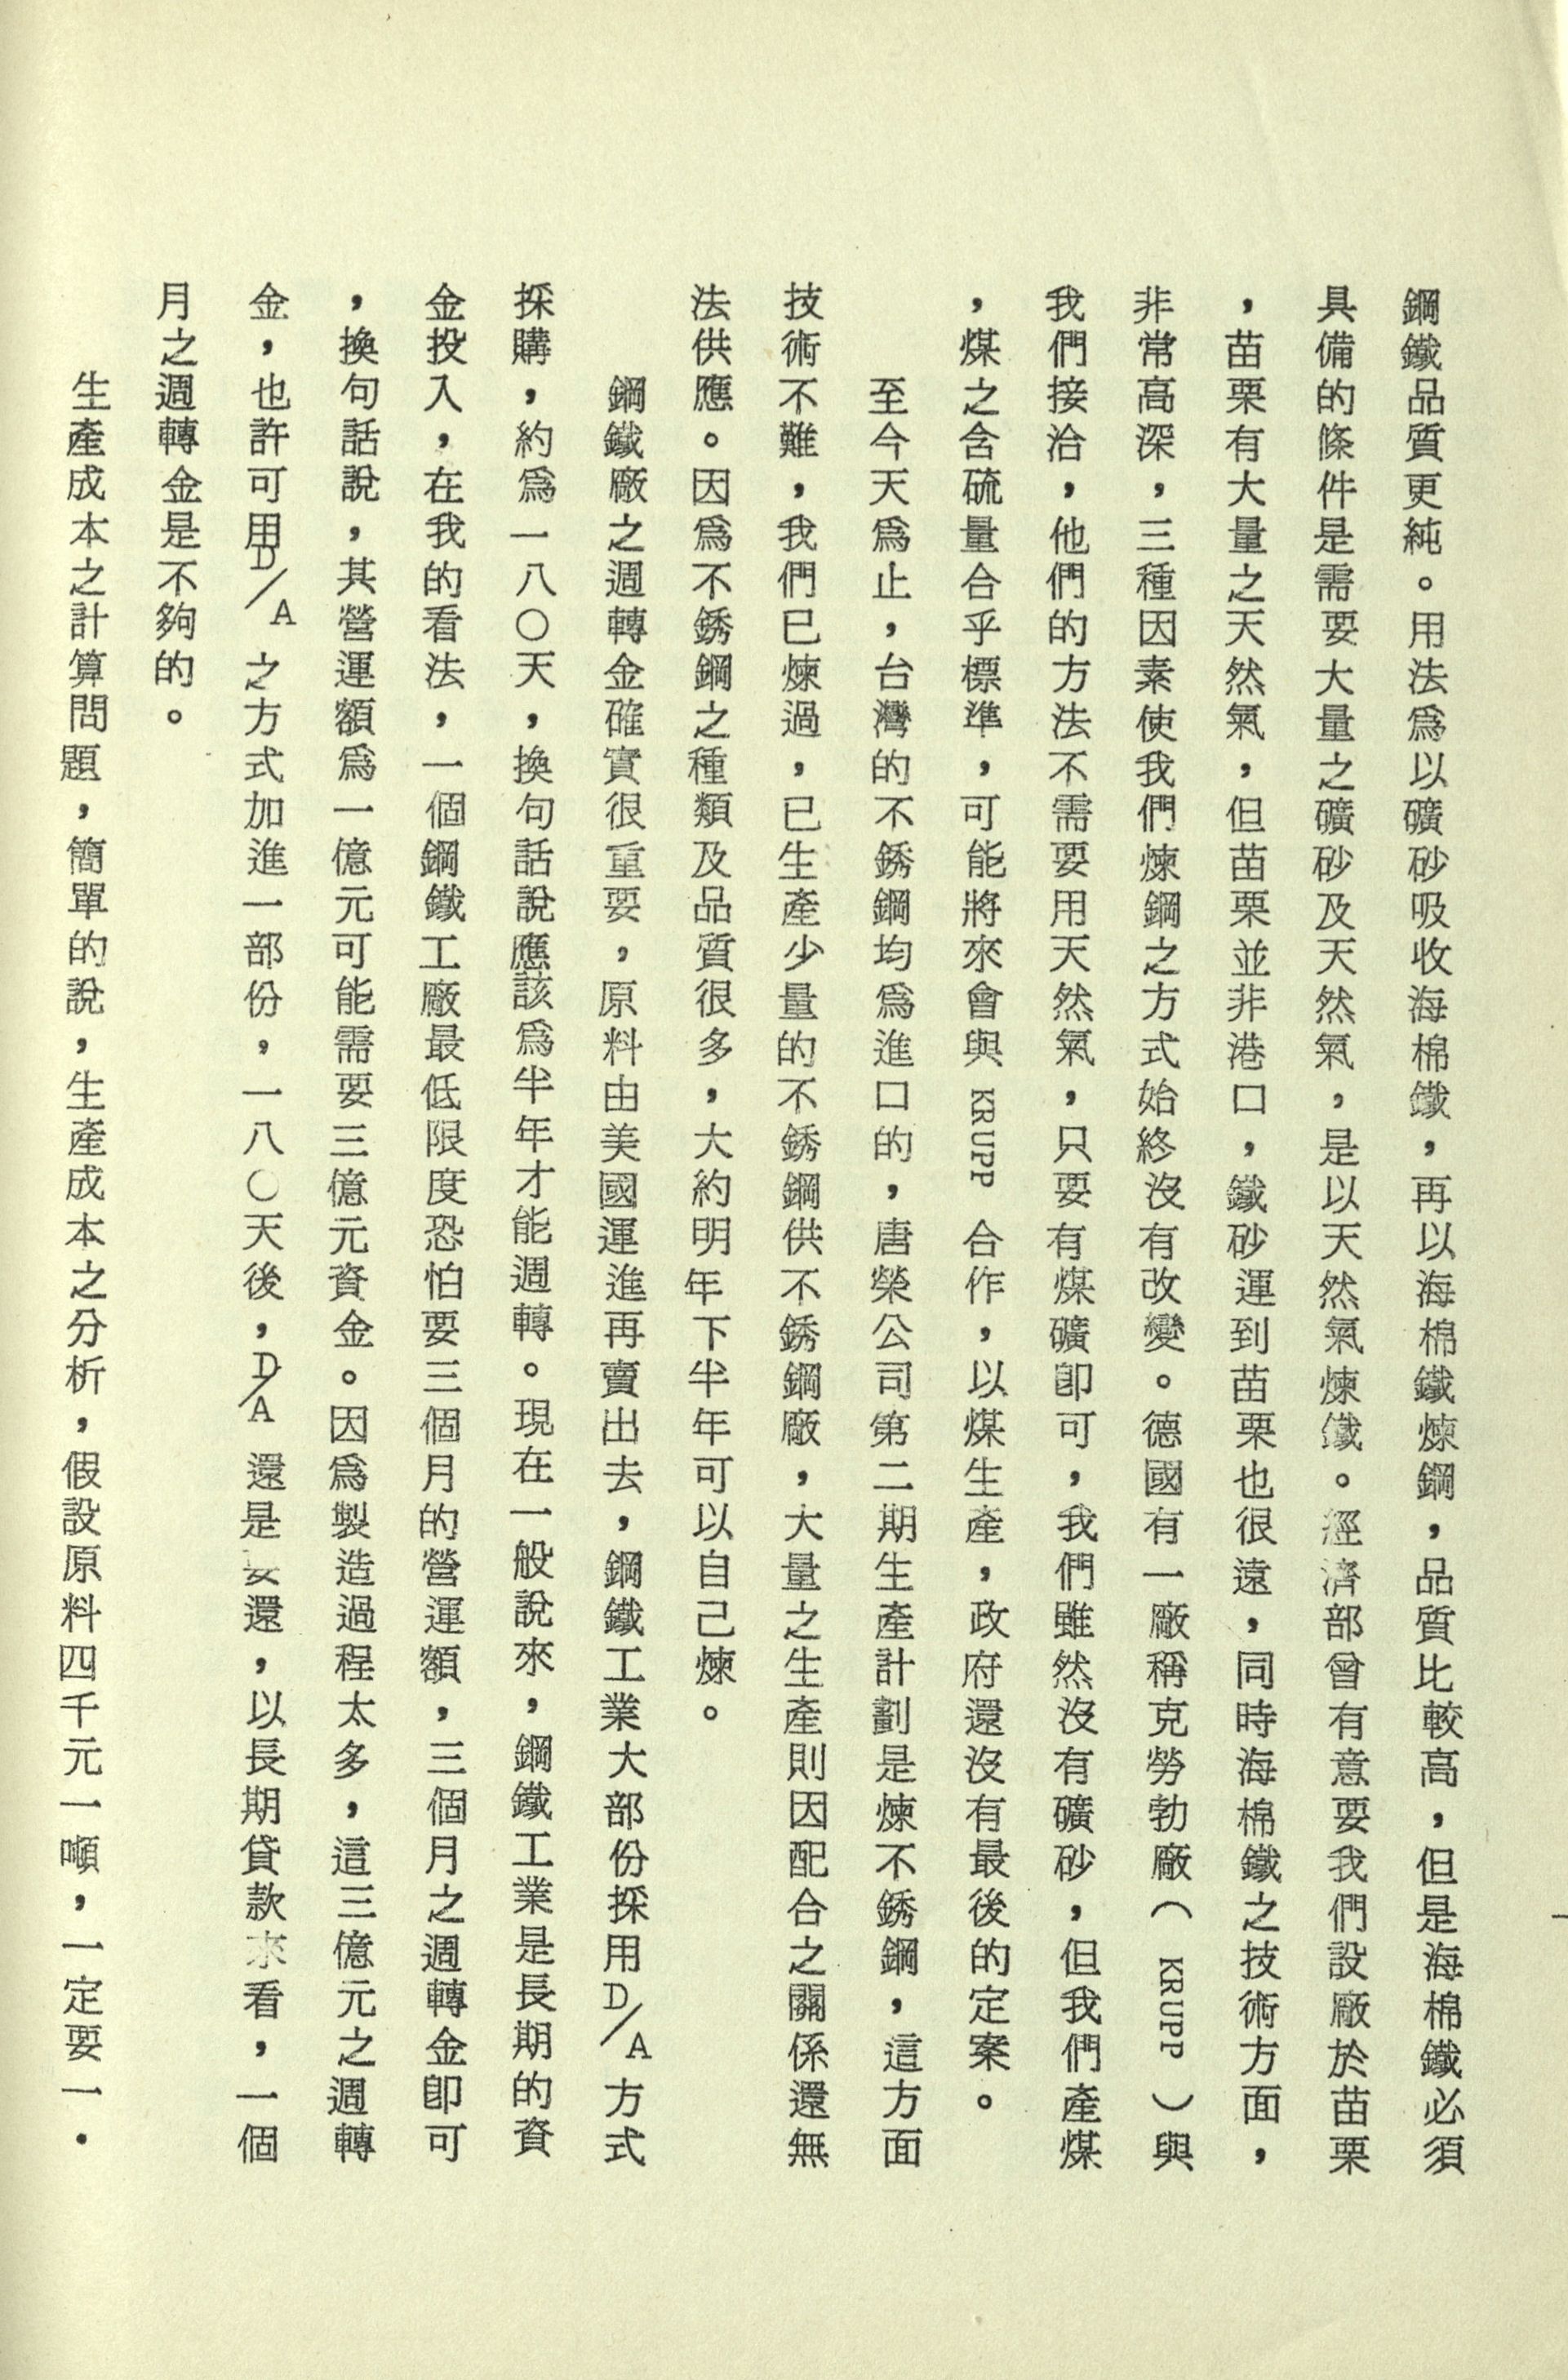 鋼鐵品質更純。用法爲以礦砂吸收海棉鐵，再以海棉鐵煉鋼，品質比較高，但是海棉鐵必須
具備的條件是需要大量之礦砂及天然氣，是以天然氣煉鐵。經濟部曾有意要我們設廠於苗栗
，苗栗有大量之天然氣，但苗栗並非港口，鐵砂運到苗栗也很遠，同時海棉鐵之技術方面，
非常高深，三種因素使我們煉鋼之方式始終沒有改變。德國有一廠稱克勞勃廠（KRUPP）與
我們接洽，他們的方法不需要用天然氣，只要有煤礦卽可，我們雖然沒有礦砂，但我們產煤
，煤之含硫量合乎標準，可能將來會與 KRUPP 合作，以煤生產，政府還沒有最後的定案。
至今天爲止，台灣的不銹鋼均爲進口的，唐榮公司第二期生產計劃是煉不銹鋼，這方面
技術不難，我們已煉過，已生產少量的不銹鋼供不銹鋼廠，大量之生產則因配合之關係還無
法供應。因爲不銹鋼之種類及品質很多，大約明年下半年可以自己煉。
鋼鐵廠之週轉金確實很重要，原料由美國運進再賣出去，鋼鐵工業大部份採用D/A方式
採購，約爲一八〇天，換句話說應該爲半年才能週轉。現在一般說來，鋼鐵工業是長期的資
金投入，在我的看法，一個鋼鐵工廠最低限度恐怕要三個月的營運額，三個月之週轉金卽可
，換句話說，其營運額爲一億元可能需要三億元資金。因爲製造過程太多，這三億元之週轉
金，也許可用D/A 之方式加進一部份，一八〇天後，D/A 還是要還，以長期貸款來看，一個
月之週轉金是不夠的。
生產成本之計算問題，簡單的說，生產成本之分析，假設原料四千元一噸，一定要一．